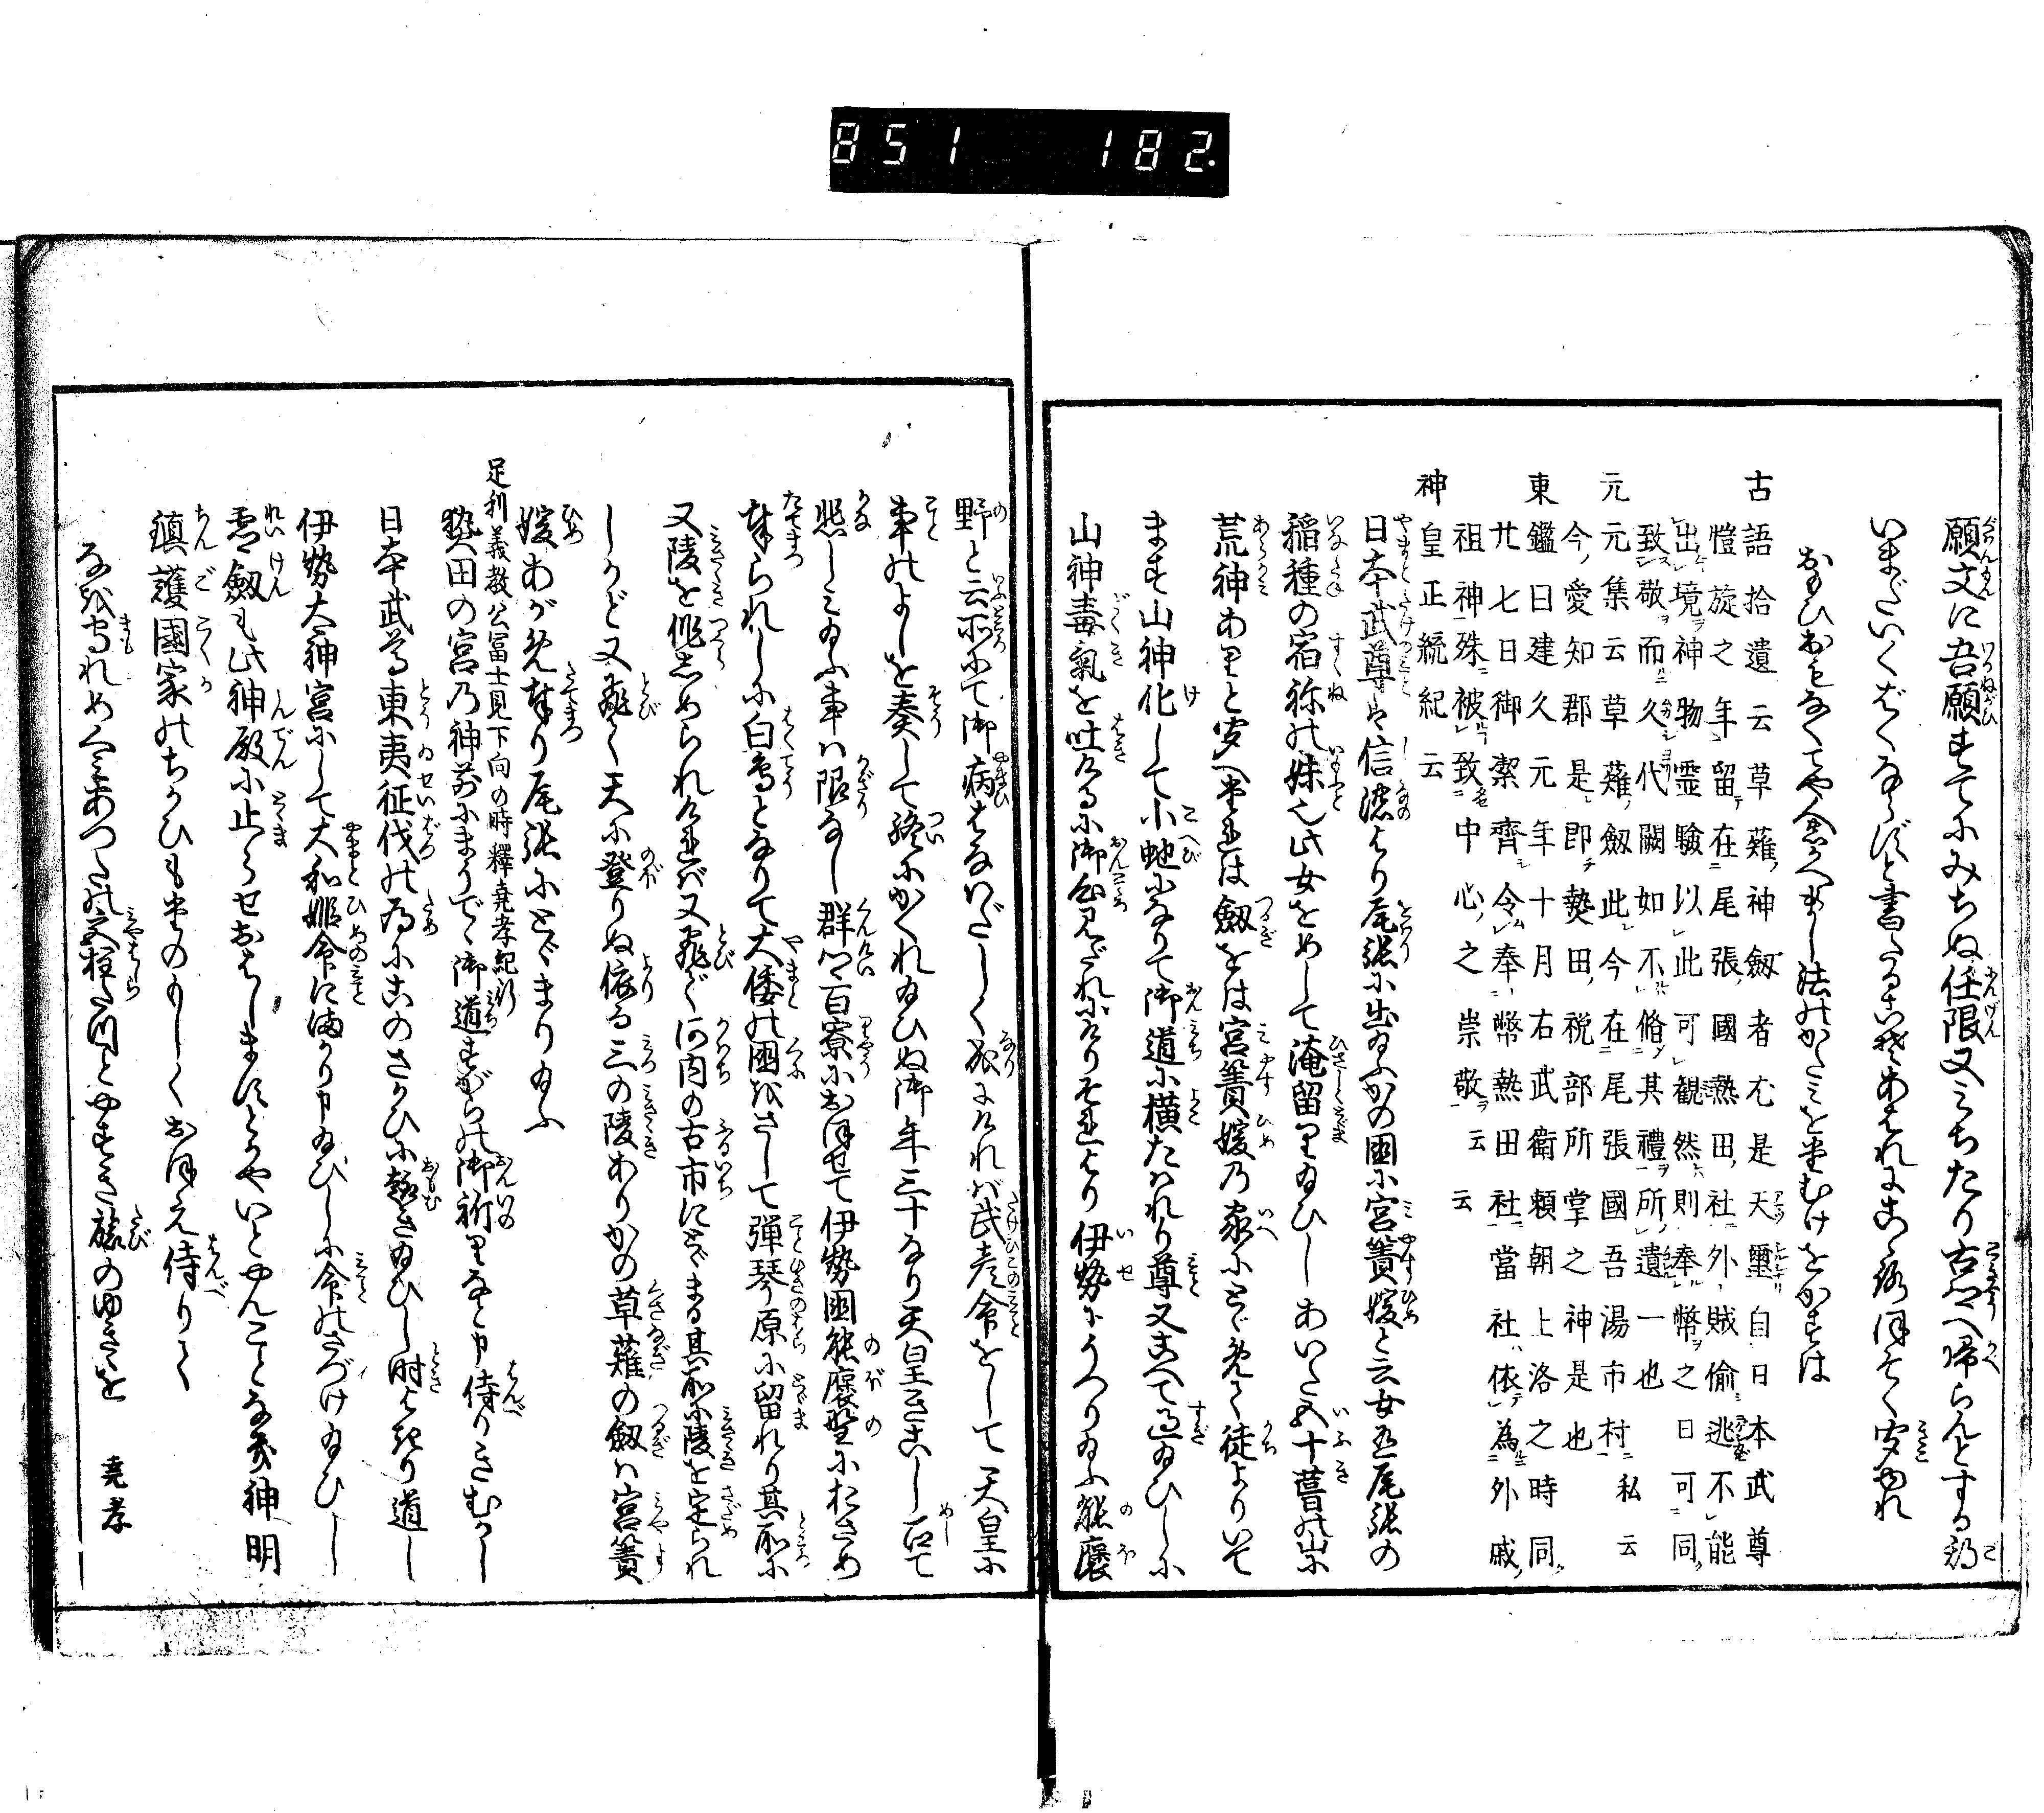 851 182
願文に吾願すてにみちぬ任限又みちたり古郷へ帰らんとする期
いまだいくばくならずと書たるこそあはれにこゝろほそく聞ゆれ
おもひおもなくてや
古語拾遺云草薙神劔者尤是天璽自日本武尊
愷旋之年留在尾張國熱田社外賊偷逃不能
出境神物霊驗以此可觀然則奉幣之日可同
致敬而久代闕如不脩其禮所遺一也
元元集云草薙劔此今在尾張國吾湯市村 私云
今愛知郡是即熱田祝部所掌之神是也
東鑑曰建久元年十月右武衛頼朝上洛之時同
廿七日御潔齊令奉幣熱田社當社依為外戚
祖神殊被致中心之崇敬云云
神皇正統紀云
日本武尊は信濃より尾張に出給ふかの国に宮簀媛と云女あり尾張の
稲種の宿祢の妹也此女をめして淹留り給ひしあいだ五十葺の山に
荒神ありと聞へければ劔をは宮簀媛の家にとゞめて徒よりいて
ます山神化して小蛇になりて御道に横たはれり尊又こへて過給ひしに
山神毒氣を吐けるに御心みだれにけりそれより伊勢にうつり給ふ能褒
野と云所にて御病はなはだしく成にければ武彦命をして天皇に
事のよしを奏して終にかくれ給ひぬ御年三十なり天皇きこし召て
悲しみ給ふ事は限なし群卿百寮におほせて伊勢國能褒野におさめ
奉られしに白鳥となりて大倭の國をさして弾琴原に留れり其所に
又陵を作しめられければ又飛て河内の古市にとゞまる其所に陵を定られ
しかど又飛て天に登りぬ依る三の陵ありかの草薙の劔は宮簀
媛あがめ奉り尾張にとゞまり給ふ
足利義教公冨士見下向の時釋堯孝紀行
熱田の宮乃神前にまうで御道すがらの御祈りなと申侍りきむかし
日本武尊東夷征伐のためにこのさかひに趣き給ひし時よきり道し
伊勢大神宮にして大和姫命に申給ひしに命のさづけ給ひし
霊劔も此神殿に止らせおはしますとかやいとやんことなき神明
鎮護國家のちかひもたのもしくおほえ侍りて
なを守れめくみあつたの宮柱たつとやすき旅のゆきゝを 堯孝